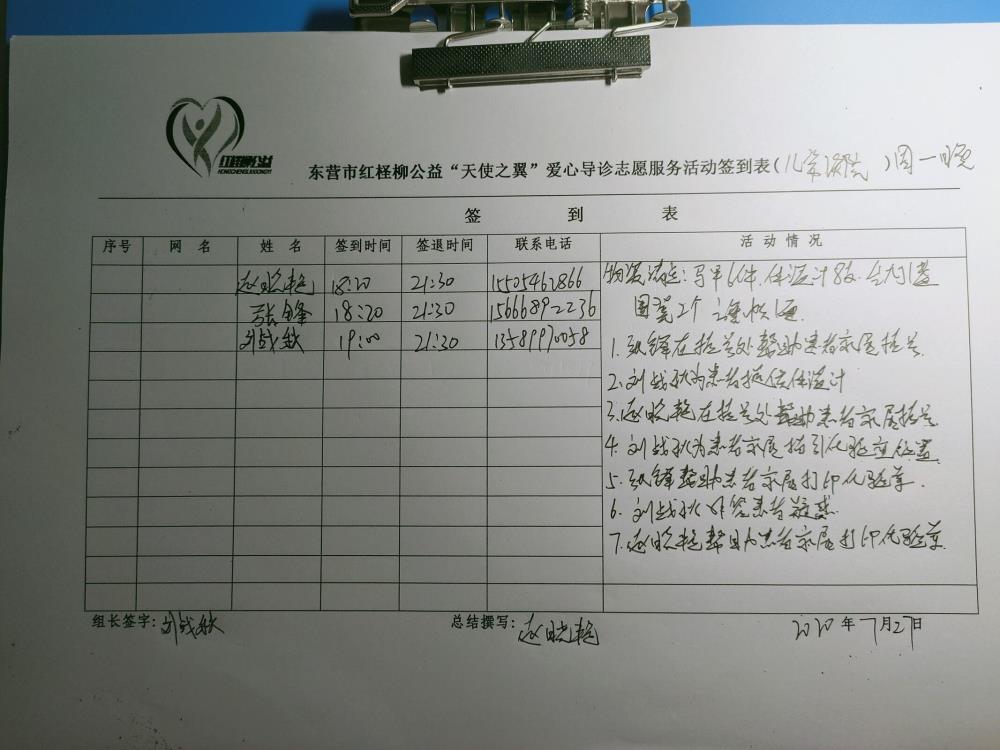 红柽柳公益
HONGCHENGLIUGONGYI
东营市红柽柳公益“天使之翼”爱心导诊志愿服务活动签到表(儿童医院)周一晚
签 到 表
序号 网 名 姓 名 签到时间 签退时间 联系电话 活 动 情 况
赵晓艳 18:20 21:30 15505462866 物资清点:马甲6件,体温计8支,
张锋 18:20 21:30 15666892236 2个
刘战秋 19:00 21:30 13589970058
1.张锋在挂号处帮助患者家属挂号.
2.刘战秋为患者提供体温计
3.赵晓艳在挂号处帮助患者家属挂号.
4.刘战秋为患者家属指引化验室位置.
5.张锋帮助患者家属打印化验单.
6.刘战秋解答患者疑惑.
7.赵晓艳帮助患者家属打印化验单.
组长签字:刘战秋 总结撰写:赵晓艳 2020年7月27日